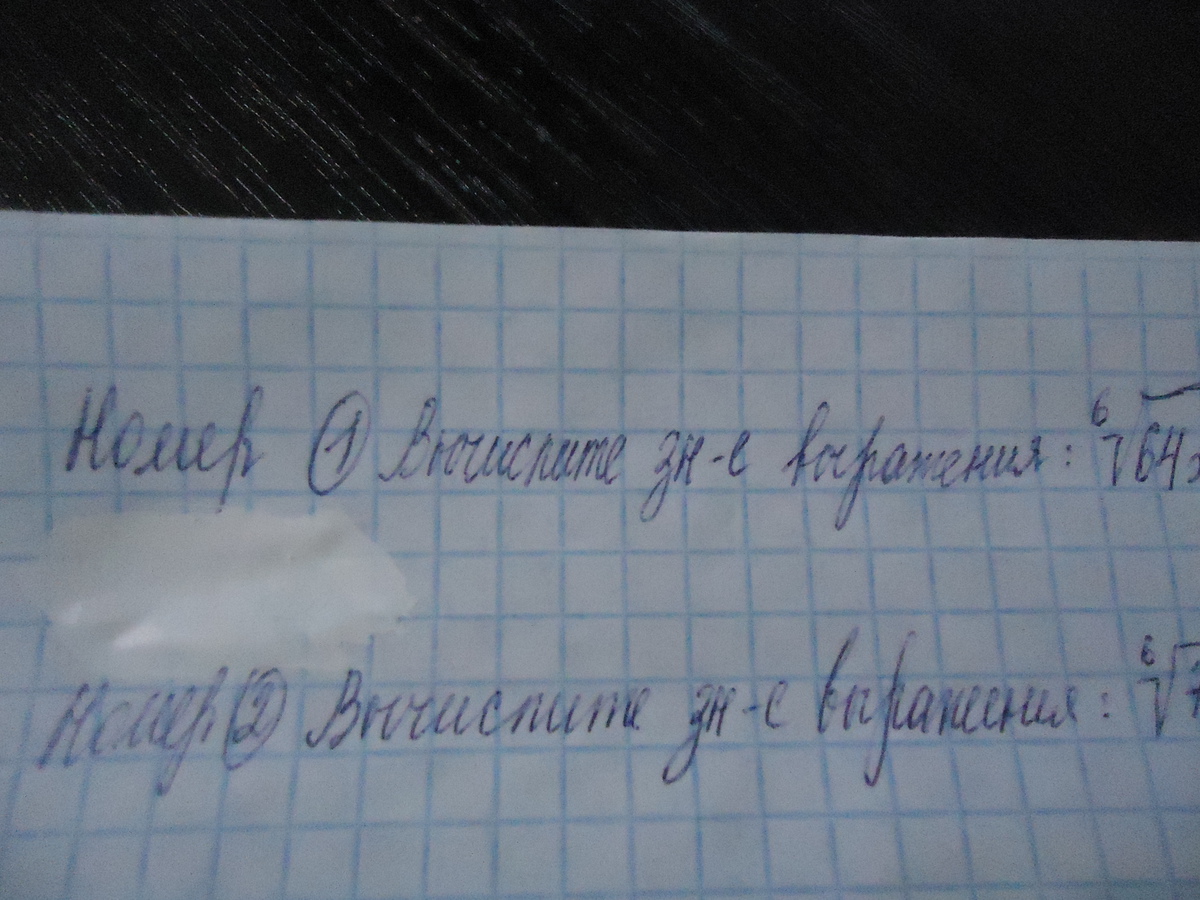 Номер ① Вычислите зн-е выражения: ⁶√64
Номер ② Вычислите зн-е выражения: ⁶√